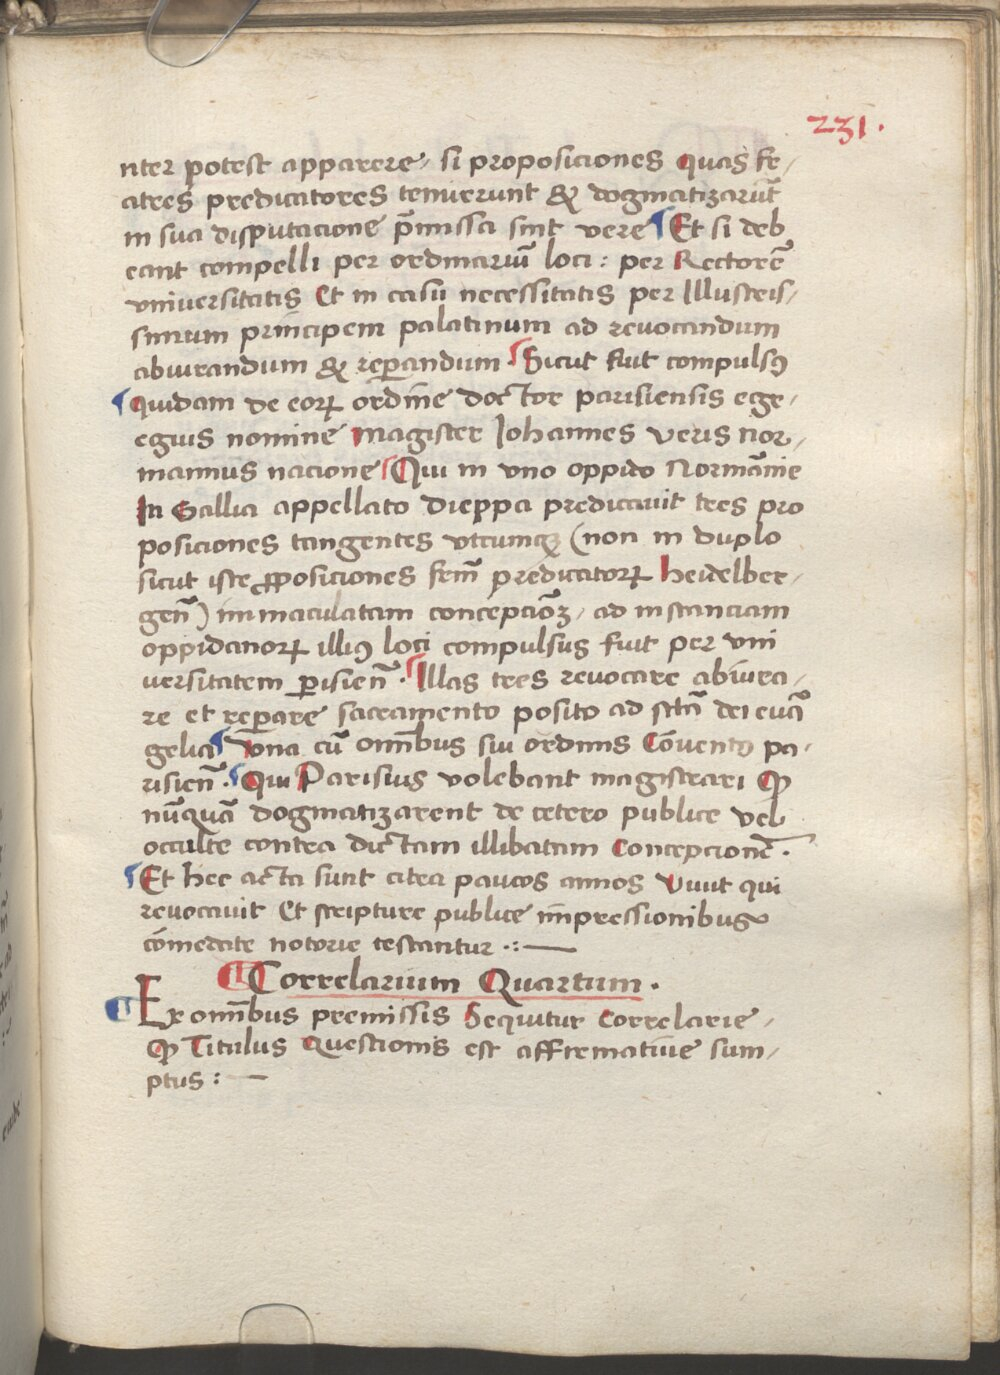 231.
nter potest apparere, si proposiciones quas fr,
atres predicatores tenuerunt & dogmatizarūt
in sua disputacione p̄missa sint vere ¶ Et si deb
eant compelli per ordinariū loci : per Rectorē
vniuersitatis Et in casu necessitatis per Illustris,
simum principem palatinum ad reuocandum
abiurandum & reꝑandum. Sicut fuit compulsꝰ
¶ Quidam de eoꝝ ordine doctor parisiensis egr,
egius nomine Magister Iohannes veris nor,
mannus nacione Qui in vno oppido Normānie
In Gallia appellato Dieppa predicauit tres pro
posiciones tangentes vtcumqꝫ (non in duplo
sicut iste ꝓposiciones frm̄ predicatoꝝ heidelber,
gen̄) immaculatam concepcioꝫ, ad instanciam
oppidanoꝝ illiꝰ loci compulsus fuit per vni
uersitatem ꝑisien̄. Illas tres reuocare abiura,
re et reꝑare sacramento posito ad sctā dei euā
gelia ¶ Vna cū omībus sui ordinis Cōuentꝰ pa,
risien̄. ¶ Qui Parisius volebant magistrari Ꝙ
nūquā dogmatizarent de cetero publice vel
occulte contra dictam illibatam Concepcionē.
¶ Et hec acta sunt citra paucos annos Viuit qui
reuocauit Et scripture publice impressionibus
cōmendate notorie testantur .:—
¶ Correlarium Quartum.
¶ Ex omībus premissis Sequitur Correlarie,
Ꝙ Titulus Questionis est affirmatiue sum,
ptus :—